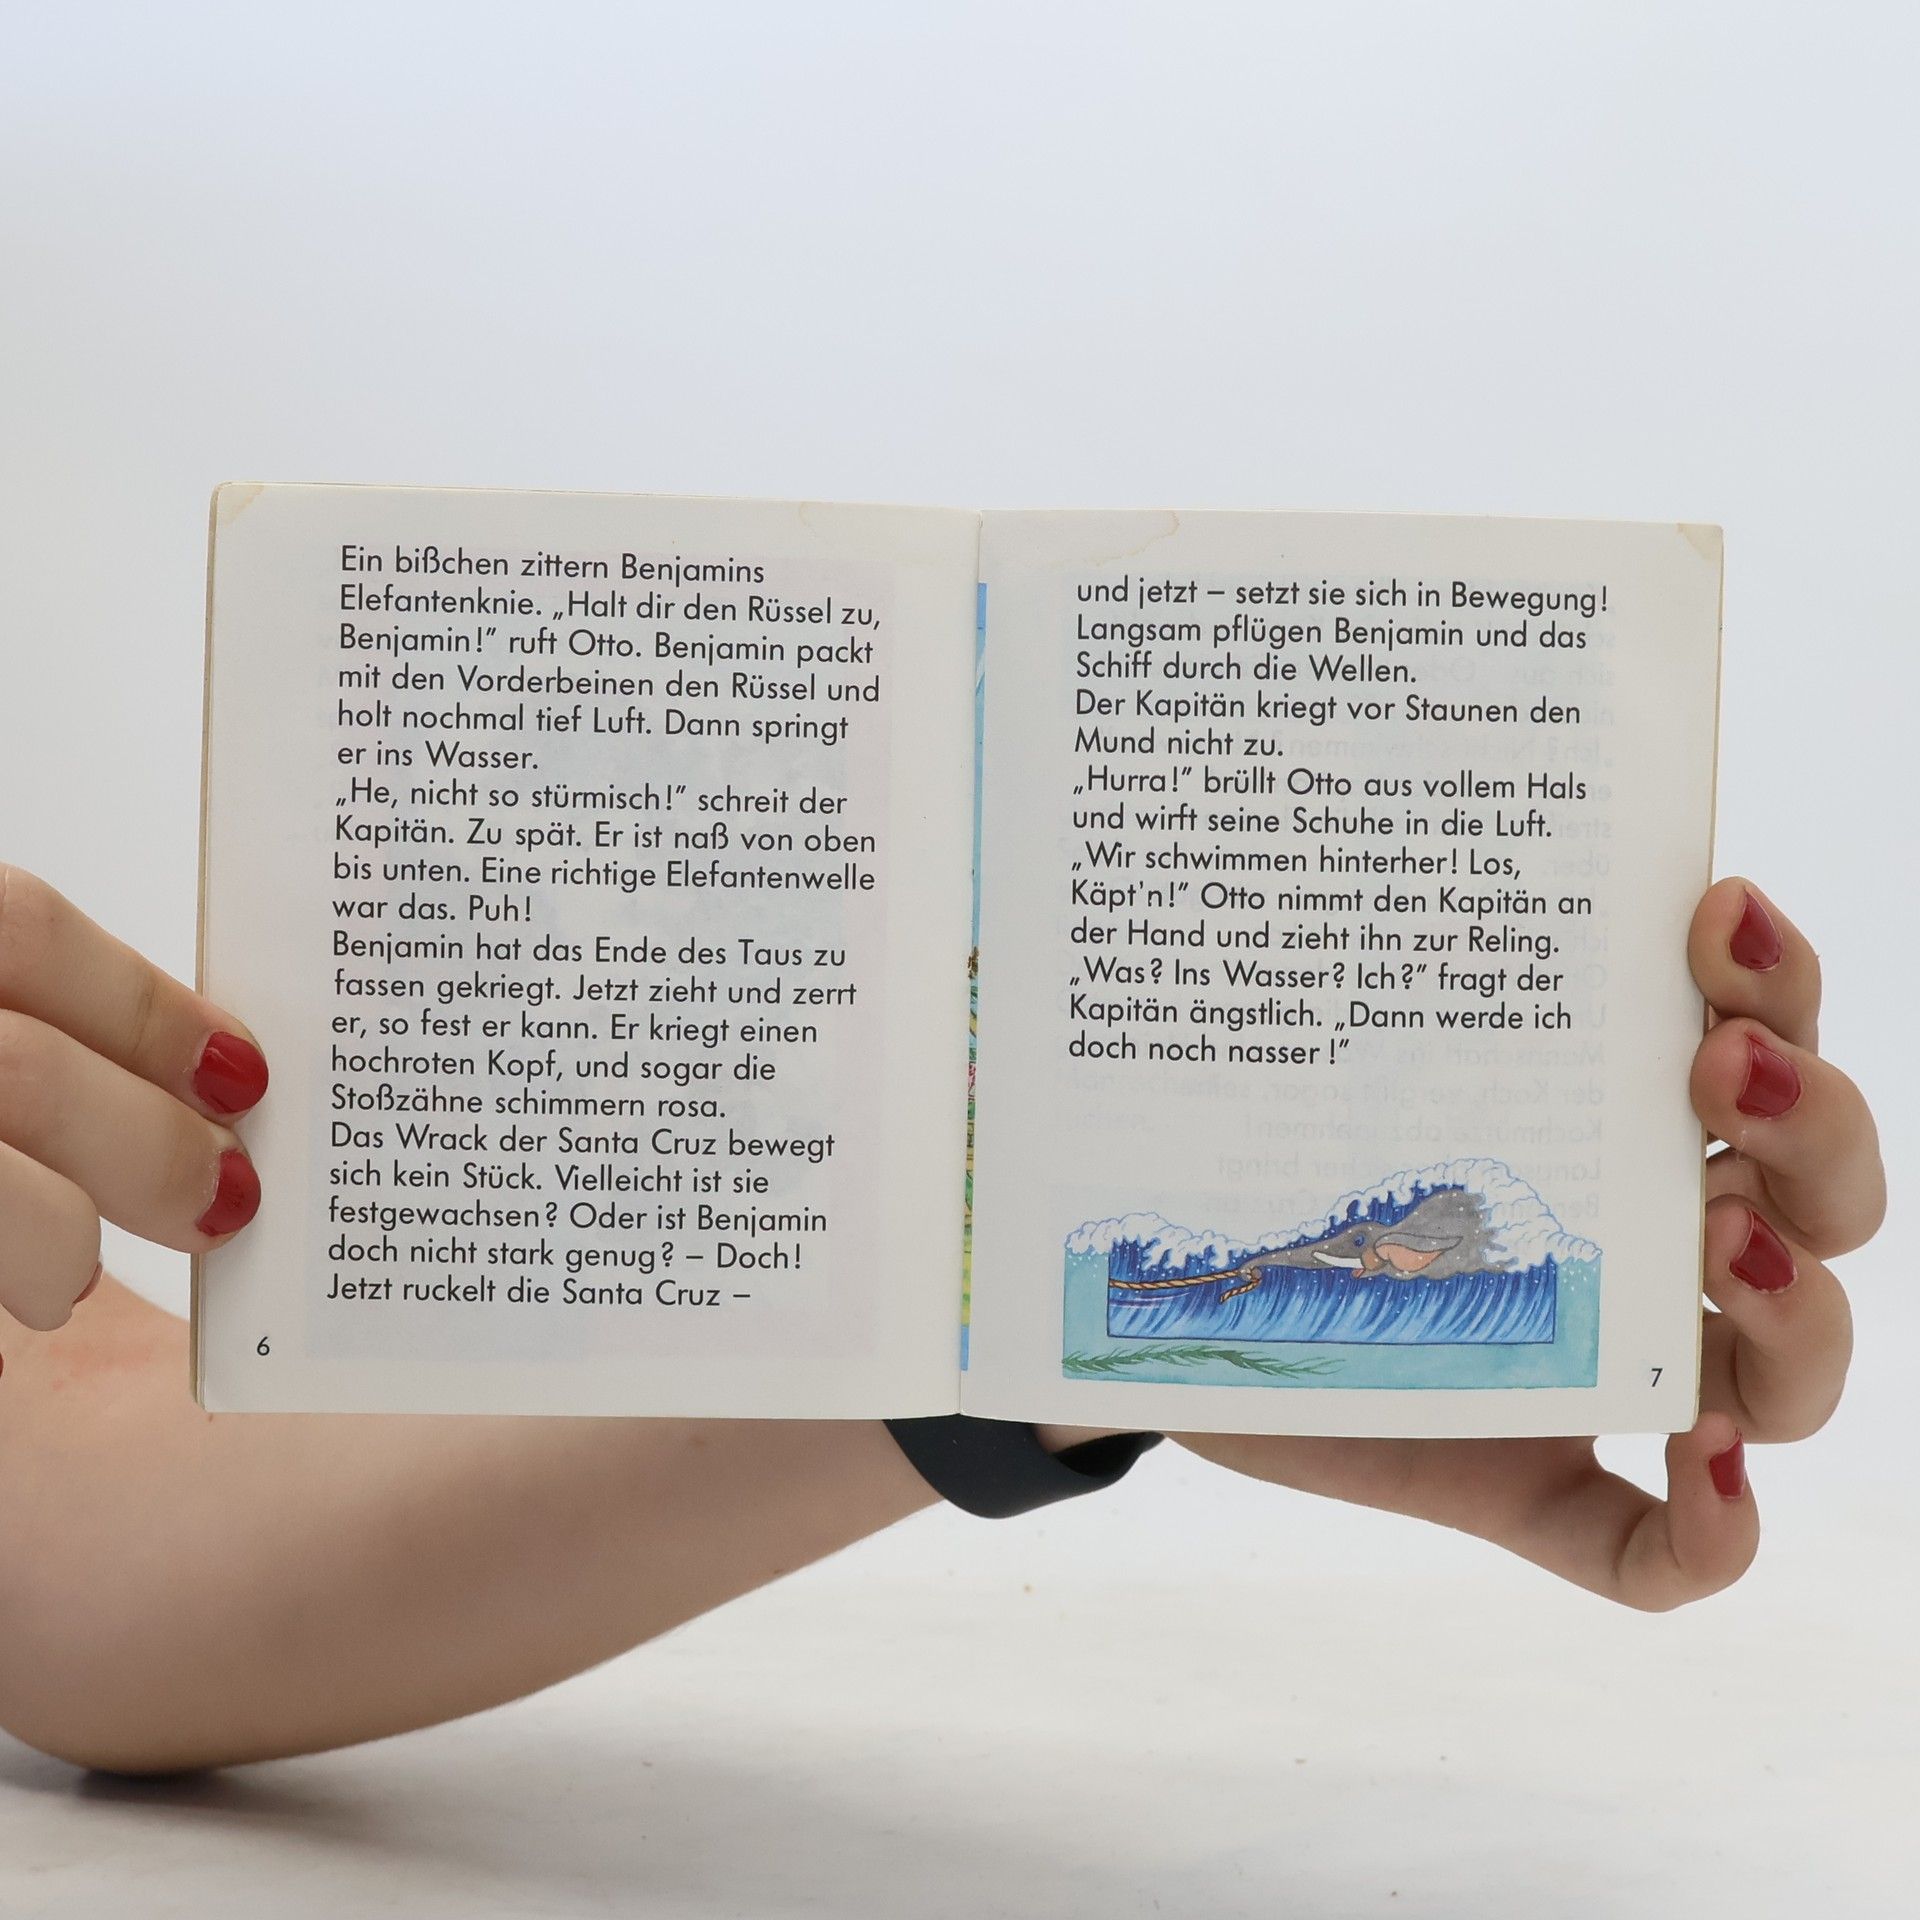 Ein bißchen zittern Benjamins
Elefantenknie. „Halt dir den Rüssel zu,
Benjamin!” ruft Otto. Benjamin packt
mit den Vorderbeinen den Rüssel und
holt nochmal tief Luft. Dann springt
er ins Wasser.
„He, nicht so stürmisch!” schreit der
Kapitän. Zu spät. Er ist naß von oben
bis unten. Eine richtige Elefantenwelle
war das. Puh!
Benjamin hat das Ende des Taus zu
fassen gekriegt. Jetzt zieht und zerrt
er, so fest er kann. Er kriegt einen
hochroten Kopf, und sogar die
Stoßzähne schimmern rosa.
Das Wrack der Santa Cruz bewegt
sich kein Stück. Vielleicht ist sie
festgewachsen? Oder ist Benjamin
doch nicht stark genug? – Doch!
Jetzt ruckelt die Santa Cruz –
6
und jetzt – setzt sie sich in Bewegung!
Langsam pflügen Benjamin und das
Schiff durch die Wellen.
Der Kapitän kriegt vor Staunen den
Mund nicht zu.
„Hurra!” brüllt Otto aus vollem Hals
und wirft seine Schuhe in die Luft.
„Wir schwimmen hinterher! Los,
Käpt'n!” Otto nimmt den Kapitän an
der Hand und zieht ihn zur Reling.
„Was? Ins Wasser? Ich?” fragt der
Kapitän ängstlich. „Dann werde ich
doch noch nasser!”
7